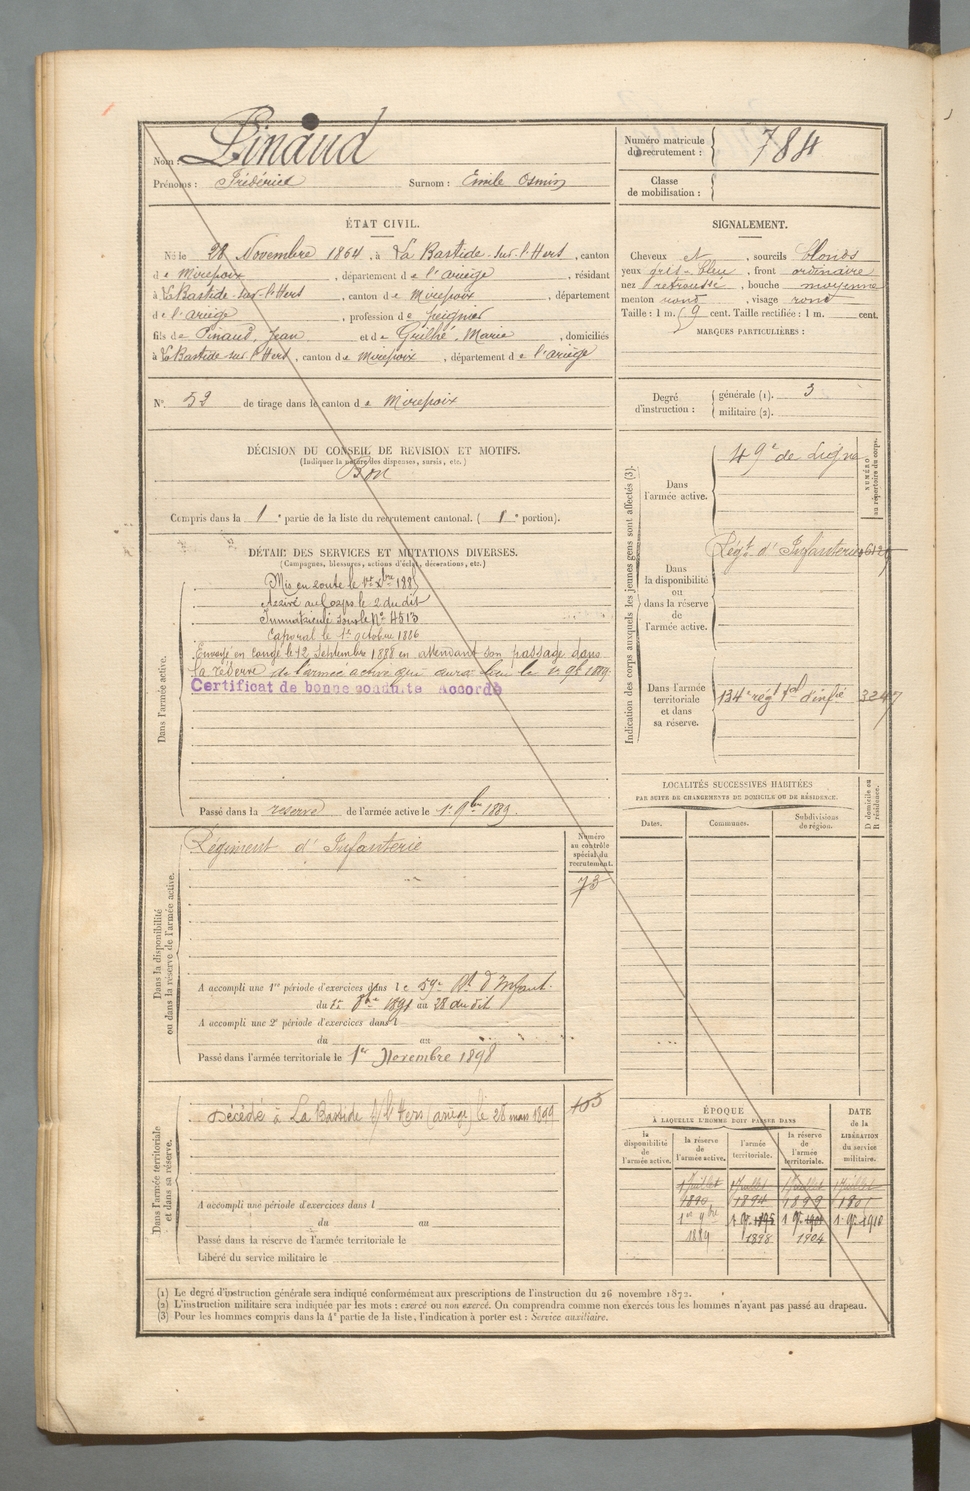 Nom : Pinaud
Prénoms : Frédéric Surnom : Emile Osmin
Numéro matricule du recrutement : 784
Classe de mobilisation :
ÉTAT CIVIL.
Né le 28 Novembre 1864, à La Bastide-sur-l'Hers, canton
de Mirepoix, département de l'ariège, résidant
à La Bastide-sur-l'Hers, canton de Mirepoix, département
de l'ariège, profession de peignier
fils de Pinaud, Jean et de Grilhé, Marie, domiciliés
à La Bastide sur l'Hers, canton de Mirepoix, département de l'ariège
SIGNALEMENT.
Cheveux et, sourcils blonds
yeux gris-bleu, front ordinaire
nez retroussé, bouche moyenne
menton rond, visage rond
Taille : 1 m. 59 cent. Taille rectifiée : 1 m. cent.
MARQUES PARTICULIÈRES :
N° 52 de tirage dans le canton de Mirepoix
Degré d'instruction : générale (1). 3
militaire (2).
DÉCISION DU CONSEIL DE REVISION ET MOTIFS.
(Indiquer la nature des dispenses, sursis, etc.)
Bon
Compris dans la 1e partie de la liste du recrutement cantonal. (1e portion).
DÉTAIL DES SERVICES ET MUTATIONS DIVERSES.
(Campagnes, blessures, actions d'éclat, décorations, etc.)
Dans l'armée active.
Mis en route le 1er Xbre 1885
Arrivé au Corps le 2 du dit
Immatriculé sous le N° 4513
Caporal le 1er octobre 1886
Envoyé en congé le 12 Septembre 1888 en attendant son passage dans
la réserve de l'armée active qui aura lieu le 1er 9bre 1889.
Certificat de bonne conduite Accordé
Passé dans la reserve de l'armée active le 1er 9bre 1889.
Indication des corps auxquels les jeunes gens sont affectés (3).
NUMÉRO au répertoire du corps.
Dans l'armée active. 49e de Ligne
Dans la disponibilité ou dans la réserve de l'armée active. Régt d'Infanterie
Dans l'armée territoriale et dans sa réserve. 134e régt tal d'infie 3247
LOCALITÉS SUCCESSIVES HABITÉES
PAR SUITE DE CHANGEMENTS DE DOMICILE OU DE RÉSIDENCE.
Dates. Communes. Subdivisions de région. D domicile ou R résidence.
Dans la disponibilité ou dans la réserve de l'armée active.
Régiment d'Infanterie
Numéro au contrôle spécial du recrutement.
73
A accompli une 1re période d'exercices dans le 59e Rt d'Infant.
du 1er 8bre 1891 au 28 du dit
A accompli une 2e période d'exercices dans l
du au
Passé dans l'armée territoriale le 1er Novembre 1898
Dans l'armée territoriale et dans sa réserve.
Décédé à La Bastide s/ l'Hers (ariège) le 26 mars 1899
103
A accompli une période d'exercices dans l
du au
Passé dans la réserve de l'armée territoriale le
Libéré du service militaire le
ÉPOQUE
À LAQUELLE L'HOMME DOIT PASSER DANS
DATE de la LIBÉRATION du service militaire.
la disponibilité de l'armée active. la réserve de l'armée active. l'armée territoriale. la réserve de l'armée territoriale.
1 Juillet 1 Juillet 1 Juillet 1 Juillet
1890 1894 1899
1er 9bre 1 9bre 1 9bre 1 9bre 1910
1889 1898 1904
(1) Le degré d'instruction générale sera indiqué conformément aux prescriptions de l'instruction du 26 novembre 1872.
(2) L'instruction militaire sera indiquée par les mots : exercé ou non exercé. On comprendra comme non exercés tous les hommes n'ayant pas passé au drapeau.
(3) Pour les hommes compris dans la 4e partie de la liste, l'indication à porter est : Service auxiliaire.